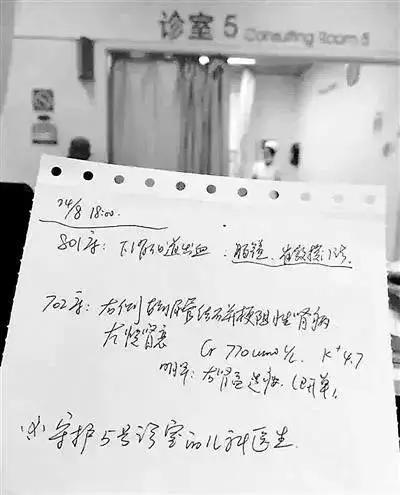 诊室 5 Consulting Room 5
24/8 18:00.
801房: 下消化道出血 : 肠镜、有效
702房: 右侧输尿管结石并梗阻性肾病
左 肾衰
Cr 770umol/L. K⁺ 4.7
明早: 右肾造瘘.
守护5号诊室的儿科医生